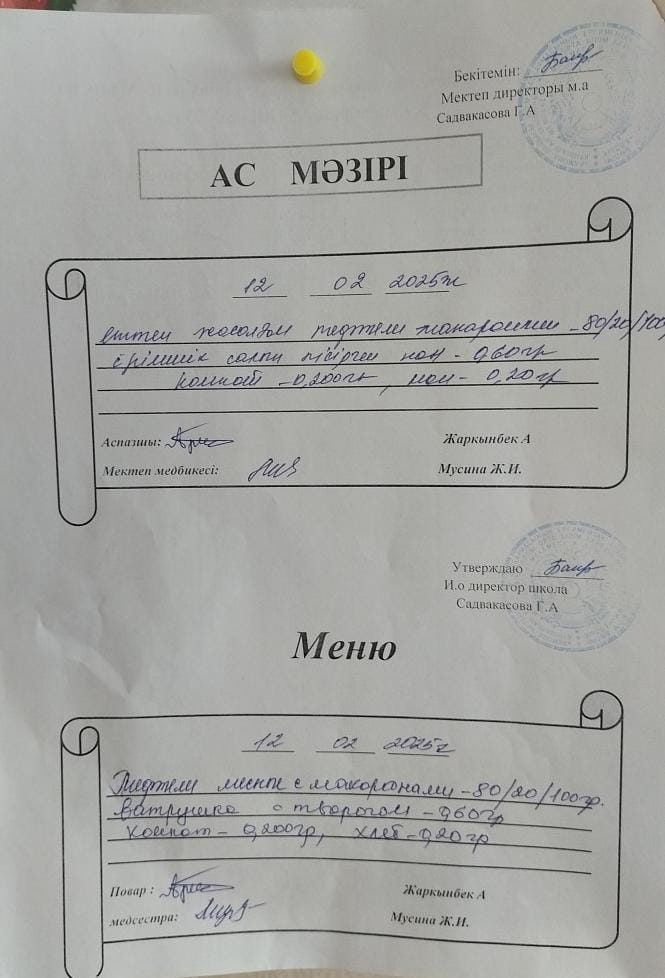 Бекітемін:
Мектеп директоры м.а
Садвакасова Г.А
АС МӘЗІРІ
12 02 2025ж
еттен жасалған тефтели макаронмен - 80/20/100
ірімшік салып пісірген нан - 0,60гр
компот - 0,200гр, нан - 0,20гр
Аспазшы: Жаркынбек А
Мектеп медбикесі: Мусина Ж.И.
Утверждаю
И.о директор школа
Садвакасова Г.А
Меню
12 02 2025г
Тефтели мясные с макоронами - 80/20/100гр.
Ватрушка с творогом - 0,60гр
Компот - 0,200гр, хлеб - 0,20гр
Повар : Жаркынбек А
медсестра: Мусина Ж.И.